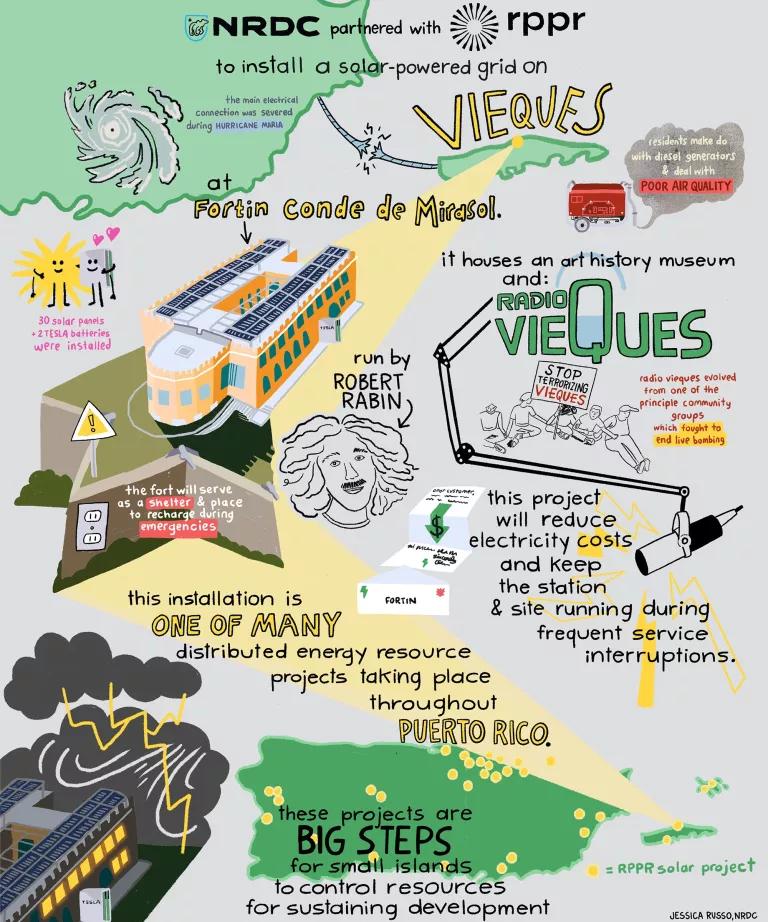 NRDC partnered with rppr
to install a solar-powered grid on
VIEQUES
the main electrical
connection was severed
during HURRICANE MARIA
residents make do
with diesel generators
& deal with
POOR AIR QUALITY
at
Fortin Conde de Mirasol.
30 solar panels
+ 2 TESLA batteries
were installed
TESLA
it houses an art history museum
and:
RADIO
VIEQUES
run by
ROBERT
RABIN
STOP
TERRORIZING
VIEQUES
radio vieques evolved
from one of the
principle community
groups
which fought to
end live bombing
the fort will serve
as a shelter & place
to recharge during
emergencies
$
FORTIN
this project
will reduce
electricity costs
and keep
the station
& site running during
frequent service
interruptions.
this installation is
ONE OF MANY
distributed energy resource
projects taking place
throughout
PUERTO RICO.
these projects are
BIG STEPS
for small islands
to control resources
for sustaining development
= RPPR solar project
TESLA
JESSICA RUSSO, NRDC